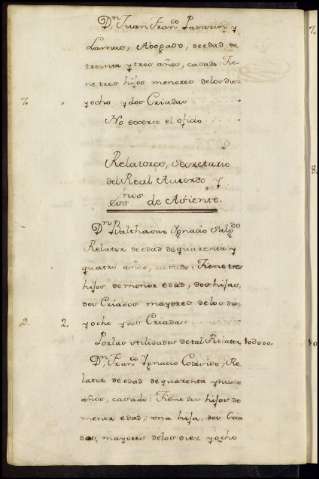 Dn. Juan Franco. y
Lamas, Abogado, de edad de
treinta y tres años, casado Tie-
ne tres hijos menores de los dies
7. yocho y dos Criadas
No egerce el oficio
Relatores, Secretario
del Real Acuerdo y
Essnos. de Asiento.
Dn. Balthasar Ignacio
Relator de edad de quarenta y
quatro años, casado: Tiene tres
hijos de menor edad, dos hijas,
dos Criados mayores de los dies
2. 2 yocho y dos Criadas
Por las utilidades de tal Relator
Dn. Franco. Ignacio Re-
lator de edad de quarenta y
años, casado: Tiene dos hijos de
menor edad; una hija, dos Cria-
dos, mayores de los diez yocho